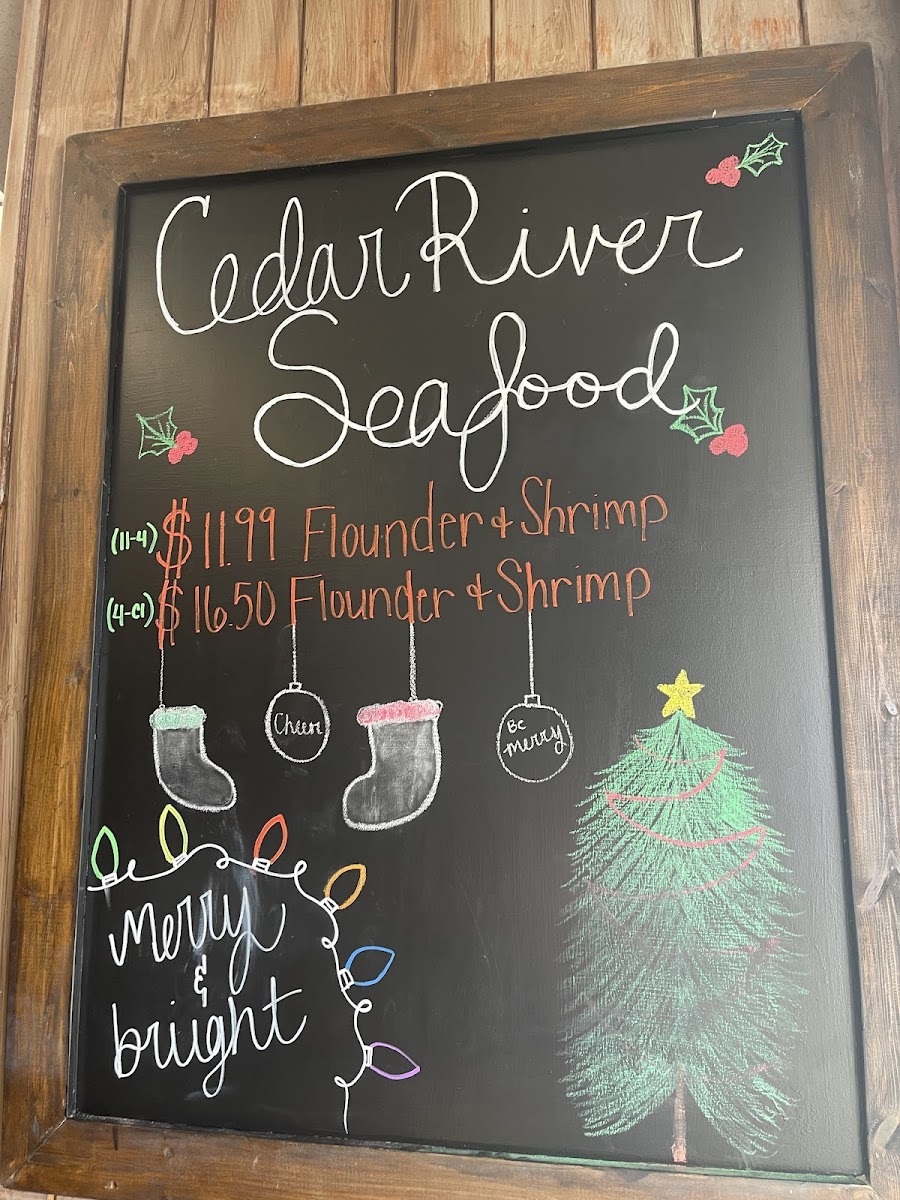 Cedar River
Seafood
(11-4) $11.99 Flounder & Shrimp
(4-Cl) $16.50 Flounder & Shrimp
Cheer
Be
merry
Merry
&
bright